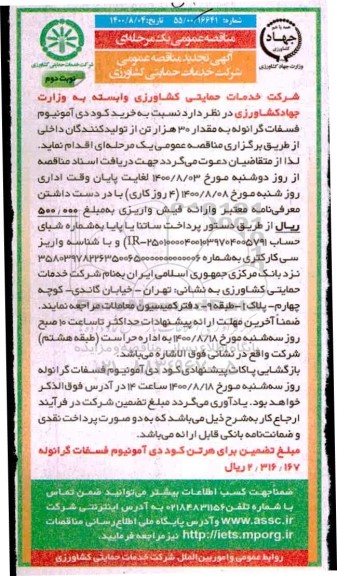 شماره: ۵۵/۰۰/۱۶۶۴۱ تاریخ: ۱۴۰۰/۸/۰۴
جهاد
وزارت جهاد کشاورزی
شرکت خدمات حمایتی کشاورزی
مناقصه عمومی یک مرحله‌ای
آگهی تجدید مناقصه عمومی
شرکت خدمات حمایتی کشاورزی
نوبت دوم
شرکت خدمات حمایتی کشاورزی وابسته به وزارت
جهادکشاورزی در نظر دارد نسبت به خرید کود دی آمونیوم
فسفات گرانوله به مقدار ۳۰ هزار تن از تولیدکنندگان داخلی
از طریق برگزاری مناقصه عمومی یک مرحله‌ای اقدام نماید.
لذا از متقاضیان دعوت می‌گردد جهت دریافت اسناد مناقصه
از روز دوشنبه مورخ ۱۴۰۰/۸/۰۳ لغایت پایان وقت اداری
روز شنبه مورخ ۱۴۰۰/۸/۰۸ (۴ روز کاری) با در دست داشتن
معرفی‌نامه معتبر وارائه فیش واریزی به‌مبلغ ۵۰۰/۰۰۰
ریال از طریق دستور پرداخت ساتنا یا پایا به‌شماره شبای
حساب (IR-۲۵۰۱۰۰۰۰۴۰۰۱۰۳۹۷۰۴۰۰۵۷۹۱) و با شناسه واریز
سی کارکتری به‌شماره
نزد بانک مرکزی جمهوری اسلامی ایران به‌نام شرکت خدمات
حمایتی کشاورزی به نشانی: تهران - خیابان گاندی- کوچه
چهارم- پلاک ۱- طبقه ۹- دفتر کمیسیون معاملات مراجعه نمایند.
ضمناً آخرین مهلت ارائه پیشنهادات حداکثر تا ساعت ۱۰ صبح
روز سه‌شنبه مورخ ۱۴۰۰/۸/۱۸ به اداره حراست (طبقه هشتم)
شرکت واقع در نشانی فوق الاشاره می‌باشد.
بازگشایی پاکات پیشنهادی کود دی آمونیوم فسفات گرانوله
روز سه‌شنبه مورخ ۱۴۰۰/۸/۱۸ ساعت ۱۴ در آدرس فوق‌الذکر
خواهد بود. یادآوری می‌گردد مبلغ تضمین شرکت در فرآیند
ارجاع کار به‌شرح ذیل می‌باشد که به دو صورت پرداخت نقدی
و ضمانت‌نامه بانکی قابل ارائه می‌باشد.
مبلغ تضمین برای هر تن کود دی آمونیوم فسفات گرانوله
۲/۳۱۶/۱۶۷ ریال
ضمناً جهت کسب اطلاعات بیشتر می‌توانید ضمن تماس
با شماره تلفن ۰۲۱۸۴۸۳۱۱۵۶ به آدرس اینترنتی شرکت
www.assc.ir و آدرس پایگاه ملی اطلاع‌رسانی مناقصات
http://iets.mporg.ir نیز مراجعه فرمایید.
روابط عمومی و امور بین الملل شرکت خدمات حمایتی کشاورزی